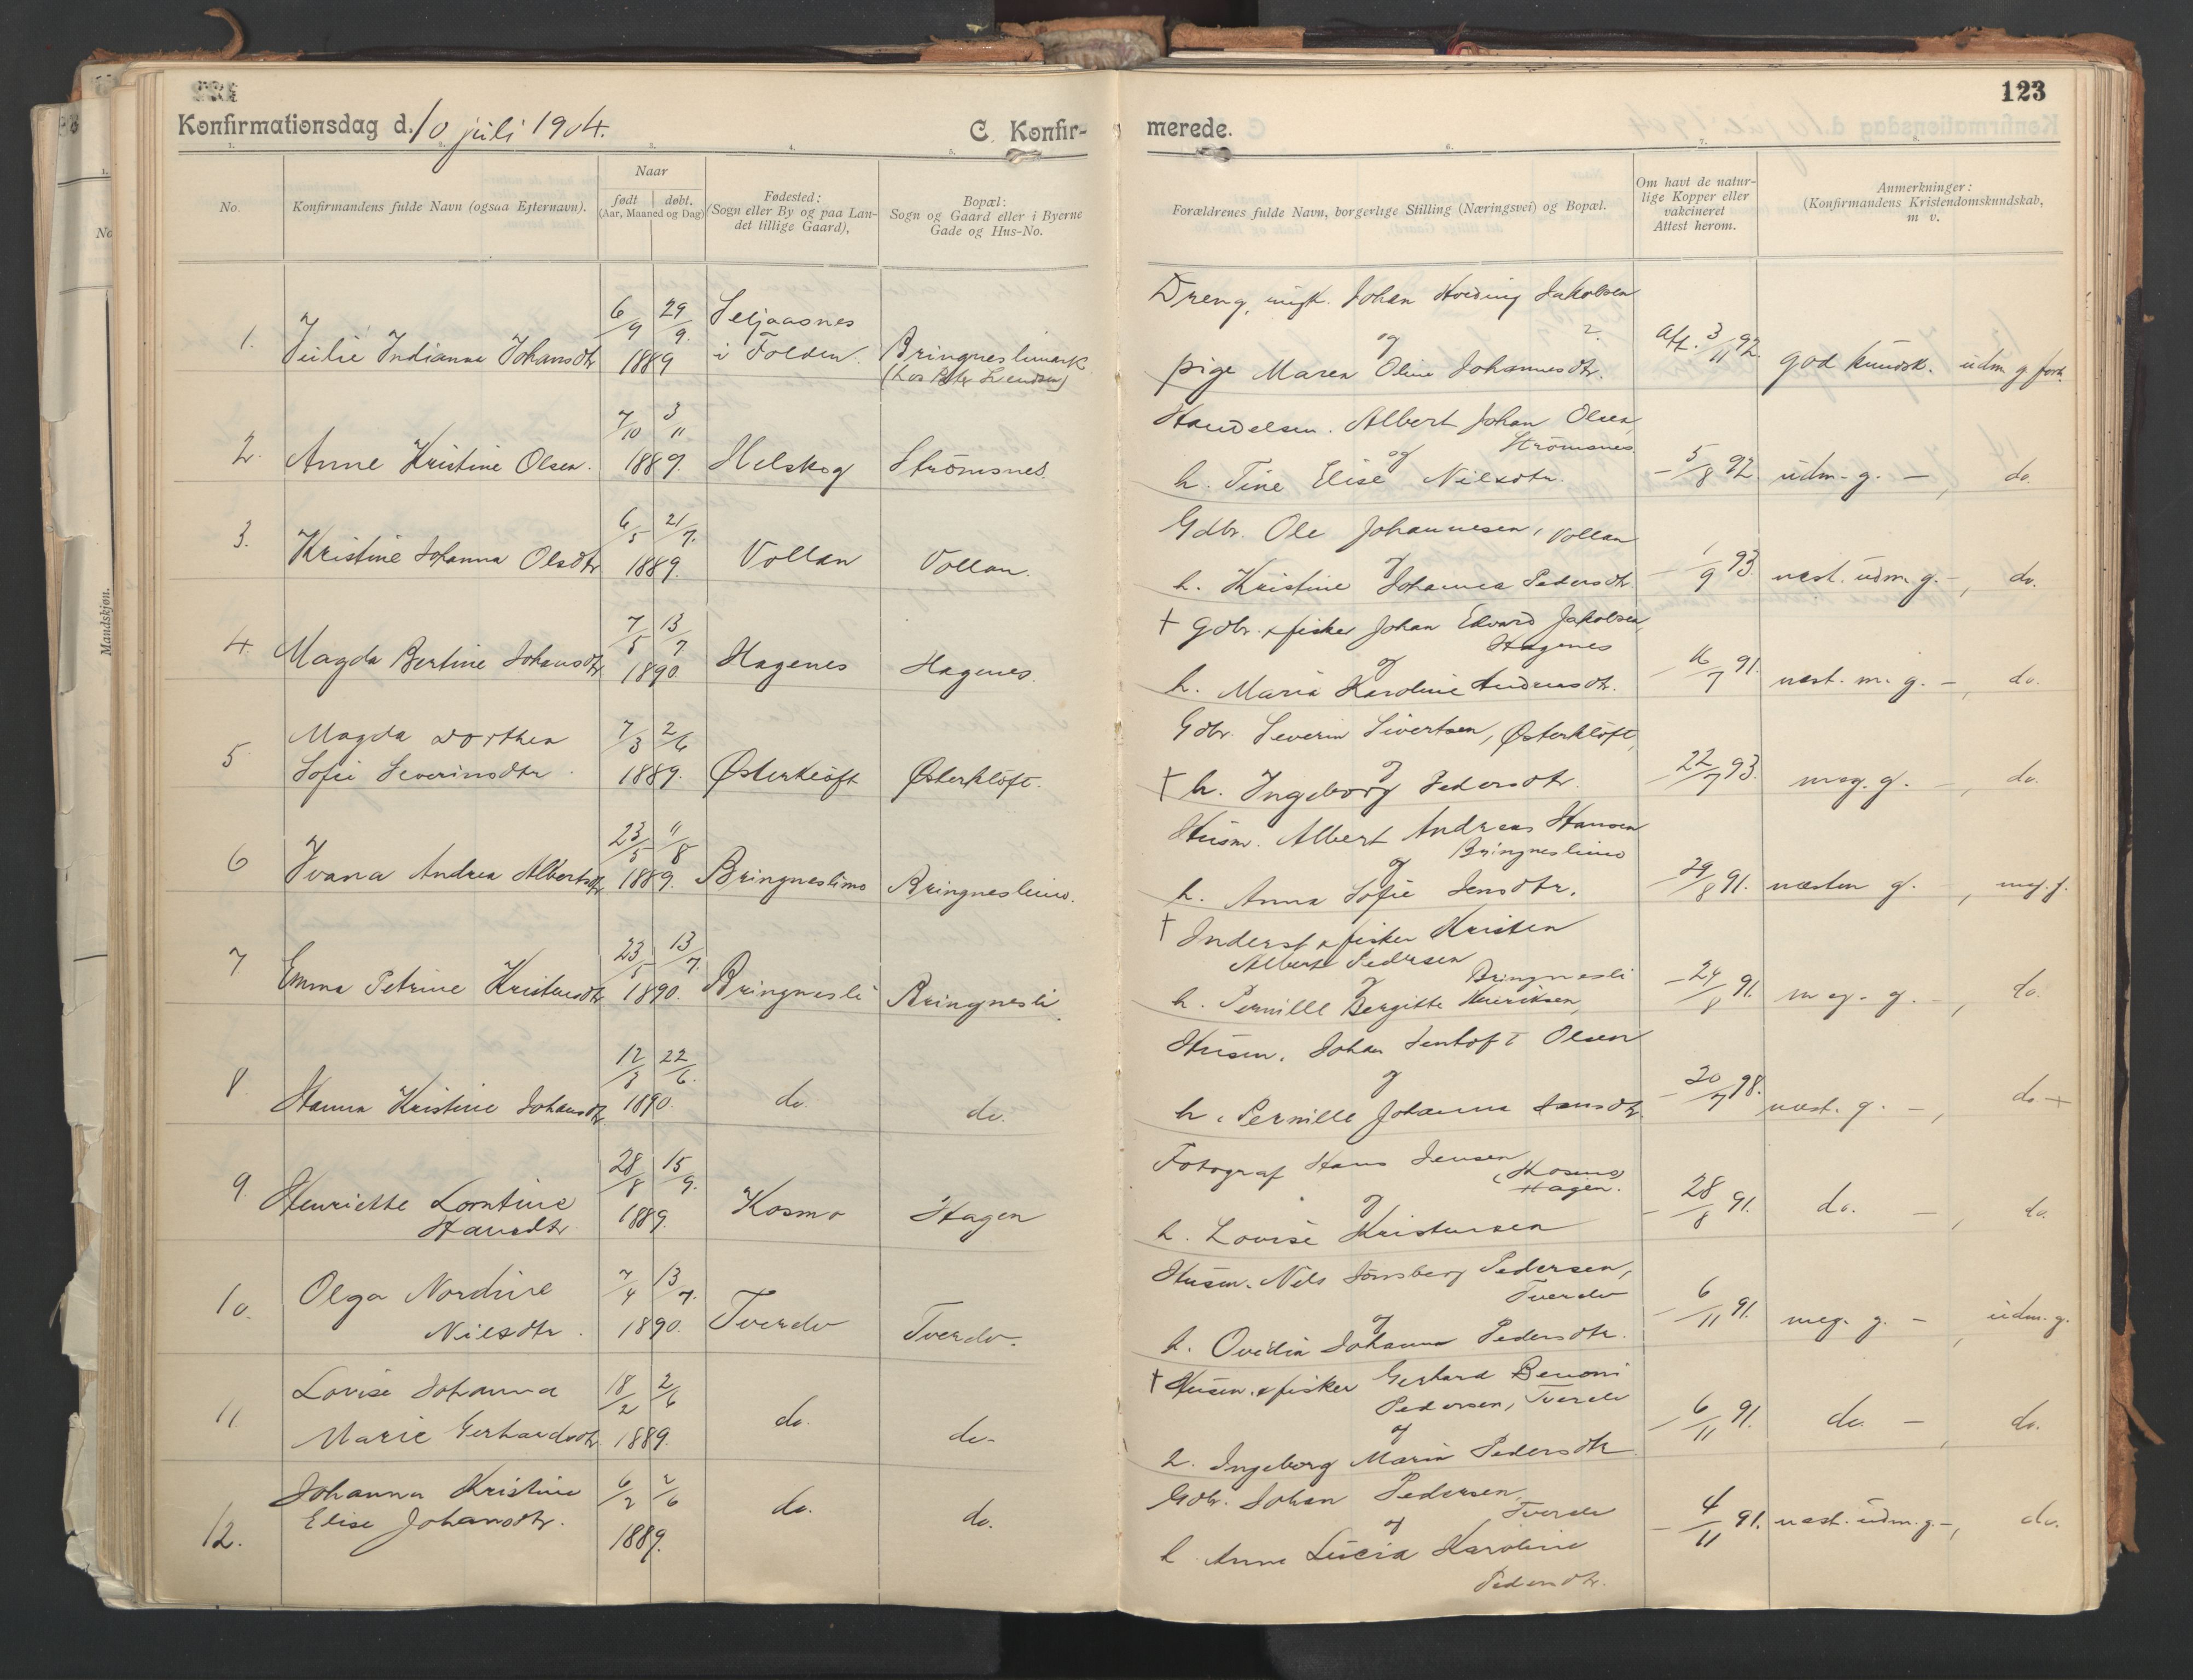 123
Konfirmationsdag d. 10 juli 1904.
C. Konfirmerede.
1. 2. 3. 4. 5. 6. 7. 8.
No.
Konfirmandens fulde Navn (ogsaa Efternavn).
Naar
født | døbt.
(Aar, Maaned og Dag)
Fødested:
(Sogn eller By og paa Lan-
det tillige Gaard),
Bopæl:
Sogn og Gaard eller i Byerne
Gade og Hus-No.
Forældrenes fulde Navn, borgerlige Stilling (Næringsvei) og Bopæl.
Om havt de natur-
lige Kopper eller
vakcineret
Attest herom.
Anmerkninger:
(Konfirmandens Kristendomskundskab,
m v.
Mandskjøn.
1. Julie Indianna Johansdtr 6/9 29/9. 1889 Seljaasnes i Folden. Bringneslimark
Dreng, ugift. Johan Jakobsen
og
pige Maren Oline Johannesdtr.
Att. 3/11 92. god kundsk. udm g forh.
2. Anne Kristine Olsen. 7/10 3/11 1889. Helskog Strömsnes.
Handelsm. Albert Johan Olsen,
Strömsnes
og
h. Tine Elise Nilsdtr.
– 5/8 92. udm. g. –, do.
3. Kristine Johanna Olsdtr 6/5 21/7. 1889. Vollan Vollan.
Gdbr. Ole Johannesen, Vollan
og
h. Kristine Johanna Pedersdtr.
– 1/9 93. næst. udm. g. –, do.
4 Magda Bertine Johansdtr 7/5 13/7 1890. Hagenes Hagenes.
† Gdbr. & fisker Johan Edvard Jakobsen,
Hagenes
og
h. Maria Karoline Andersdtr.
– 16/7 91. næst. m. g. –, do.
5 Magda Dorthea
Sofie Severinsdtr. 7/3 2/6 1889. Østerkløft Østerkløft.
Gdbr. Severin Sivertsen, Østerkløft,
og
† h. Ingeborg Pedersdtr.
– 22/7 93. meg. g. –, do.
6 Ivana Andrea Albertsdtr 23/5 11/8 1889. Bringneslimo Bringneslimo.
Husm. Albert Andreas Hansen
Bringneslimo
og
h. Anna Sofie Jensdtr.
– 29/8 91. næsten g. –, meg. g.
7 Emma Petrine Kristensdtr 23/5 13/7. 1890. Bringnesli Bringnesli.
† Inderst & fisker Kristen
Albert Pedersen
og Bringnesli
h. Pernille Bergitte Henriksen,
– 24/8 91. meg. g. –, do.
8 Hanna Kristine Johansdtr 12/3 22/6. 1890. do. do.
Husm. Johan Olsen
og
h. Pernille Johanna Jensdtr.
– 20/7 98. næst. g. –, do +
9. Henriette Lorntine
Hansdtr. 28/8 15/9. 1889. Kosmo Hagen
Fotograf Hans Jensen
(Kosmo)
Hagen.
og
h. Lovise Kristensen
– 28/8 91. do. –, do.
10. Olga Nordine
Nilsdtr. 7/4 13/7. 1890. Tverdv Tverdv.
Husm. Nils Pedersen,
Tverdv
og
h. Ovidia Johanna Pedersdtr.
– 6/11 91. meg. g. –, udm. g.
11 Lovise Johanna
Marie Gerhardsdtr. 18/2 2/6 1889. do. do.
† Husm. & fisker Gerhard Benoni
Pedersen, Tverdv
og
h. Ingeborg Maria Pedersdtr.
– 6/11 91. do. –, do.
12. Johanna Kristine
Elise Johansdtr. 6/2 2/6 1889. do. do.
Gdbr. Johan Pedersen,
Tverdv
og
h. Anne Lucia Karoline
Pedersdtr.
– 4/11 91. næst. udm. g. –, do.